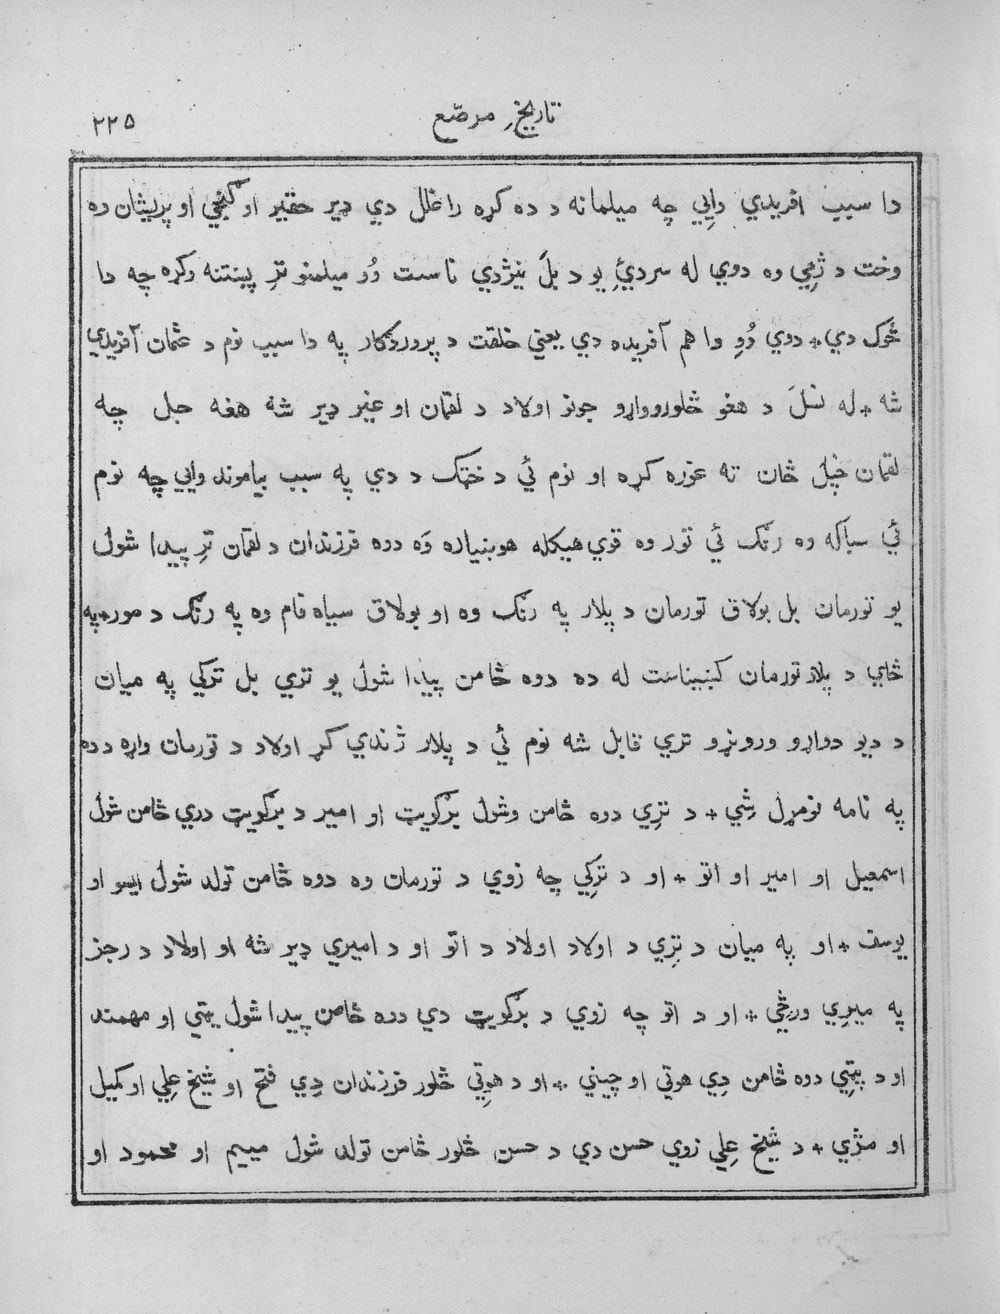 تاریخِ مرصّع ۲۲۵
دا سبب افریدي وایي چه میلمانه د ده کره راغلل دي ډیر حقیر او او پریشان وه
وخت د ژمي وه دوي له سردئِ یو د بلَ نیژدي ناست وُو میلمنو ترِ پښتنه وکره چه دا
څوک دي + دوي وُوِ وا هم آفریده دي یعني خلقت د پروردګار په دا سبب نوم د عثمان آفریدي
شه + له نسلَ د هغو څلورو واړو جونو اولاد د لقمان او غیر ډیر شه هغه جل چه
لقمان خپل څان ته غوره کړه او نوم ئي د ختک د دي په سبب بیاموند وایي چه نوم
ئي سباکه وه رنګ ئي تور وه قوي هیکله هوښیاره وَه دوه فرزندان د لقمان ترِ پیدا شول
یو تورمان بل بولاق تورمان د پلار په رنګ وه او بولاق سیاه فام وه په رنګ د مور + په
څاي د پلار تورمان کښیناست له ده دوه څامن پیدا شول یو تري بل ترکي په میان
د دیو دواړو ورونړو تري قابل شه نوم ئي د پلار ژندي کړ اولاد د تورمان واړه د ده
په نامه نومړل شِي + د ترِي دوه څامن وشول برګویت او امیر د برګویت دري څامن شول
اسمعیل او امیر او اتو + او د ترکِي چه زوي د تورمان وه دوه څامن تولد شول ایسو او
یوسف + او په میان د ترِي د اولاد اولاد د اتو او د امیري ډیر شه او اولاد د رجز
په میرِي ورځِي + او د اتو چه زوي د برګویت دي دوه څامن پیدا شول یتي او مهمند
او د یتِي دوه څامن دِي هوتي او چیني + او د هوتِي څلور فرزندان دِي فتح او شیخ علِي او کمیل
او مژي + د شیخ علِي زوي حسن دي د حسن څلور څامن تولد شول مییم او محمود او